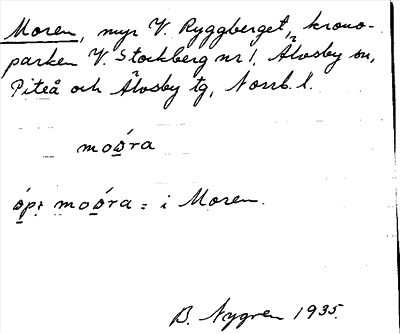 Moren, myr V. Ryggberget, krono-
parken V. Stockberg nr 1, Älvsby sn,
Piteå och Älvsby tg, Norrb. l.
moo̲ra
ó̲p: moó̲ra = i Moren.
B. Nygren 1935.